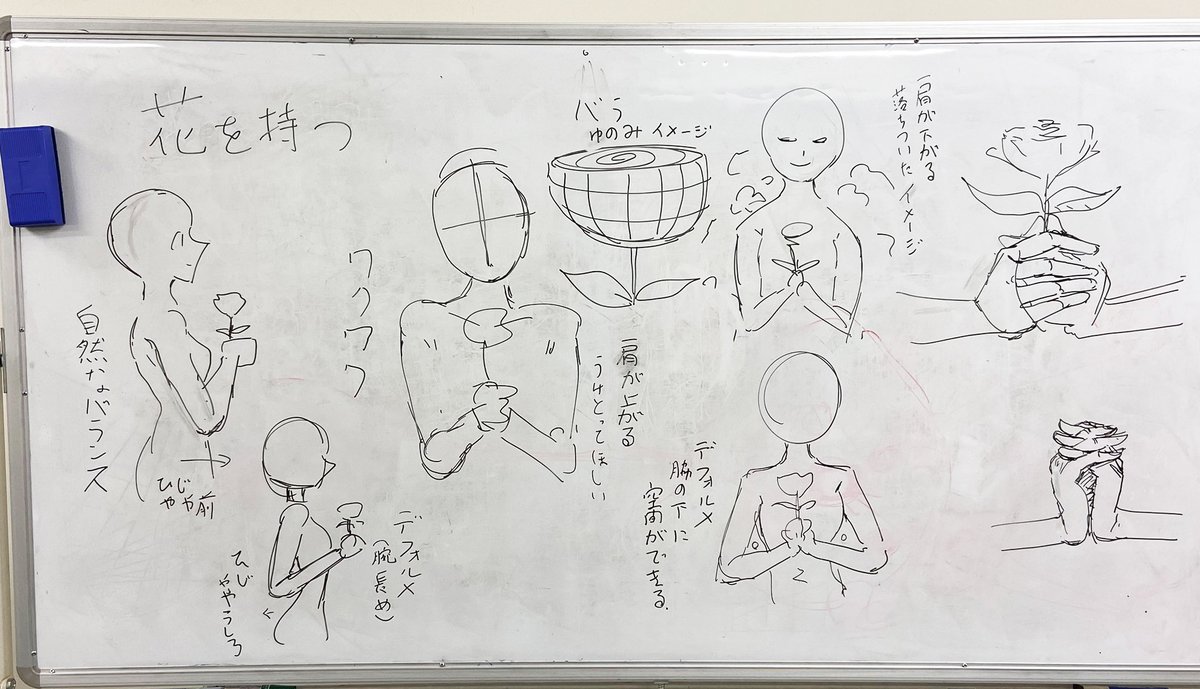 花を持つ
自然なバランス
ひじ
やや前
ワクワク
デフォルメ
(腕長め)
ひじ
ややうしろ
バラ
ゆのみイメージ
肩が上がる
うけとってほしい
肩が下がる
落ちついたイメージ
デフォルメ
脇の下に
空間ができる